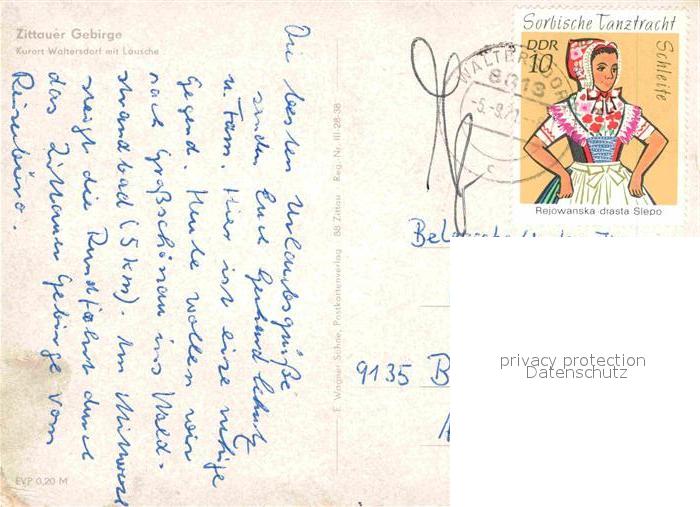 Zittauer Gebirge
Kurort Waltersdorf mit Lausche
Die besten Urlaubsgrüße
senden Euch Gerhard
u. Fam. Hier ist eine ruhige
Gegend. Heute wollen wir
nach Großschönau ins Wald-
strandbad (5 km). Am Mittwoch
steigt die Rundfahrt durch
das Zittauer Gebirge vom
Reisebüro.
EVP 0,20 M
E. Wagner Söhne, Postkartenverlag 88 Zittau Reg.-Nr. III-28-38
WALTERSDORF
8813
-5.-8.71
c
Sorbische Tanztracht
DDR
10
Schleife
Rejowanska drasta Slepo
9135 B
privacy protection
Datenschutz